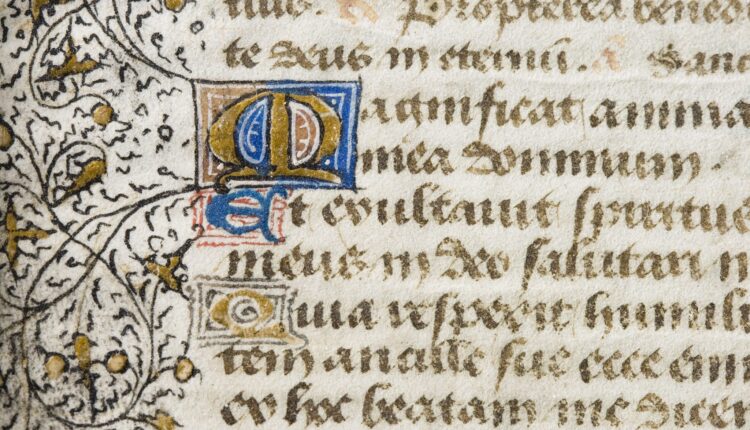 tuis. Propterea bened
te deus in eternū. a Sanc
Magnificat anima
mea dominum.
Et exultauit spiritus
meus in deo salutari m
Quia respexit humili
tem ancille sue ecce eni
ex hoc beatam me dicen